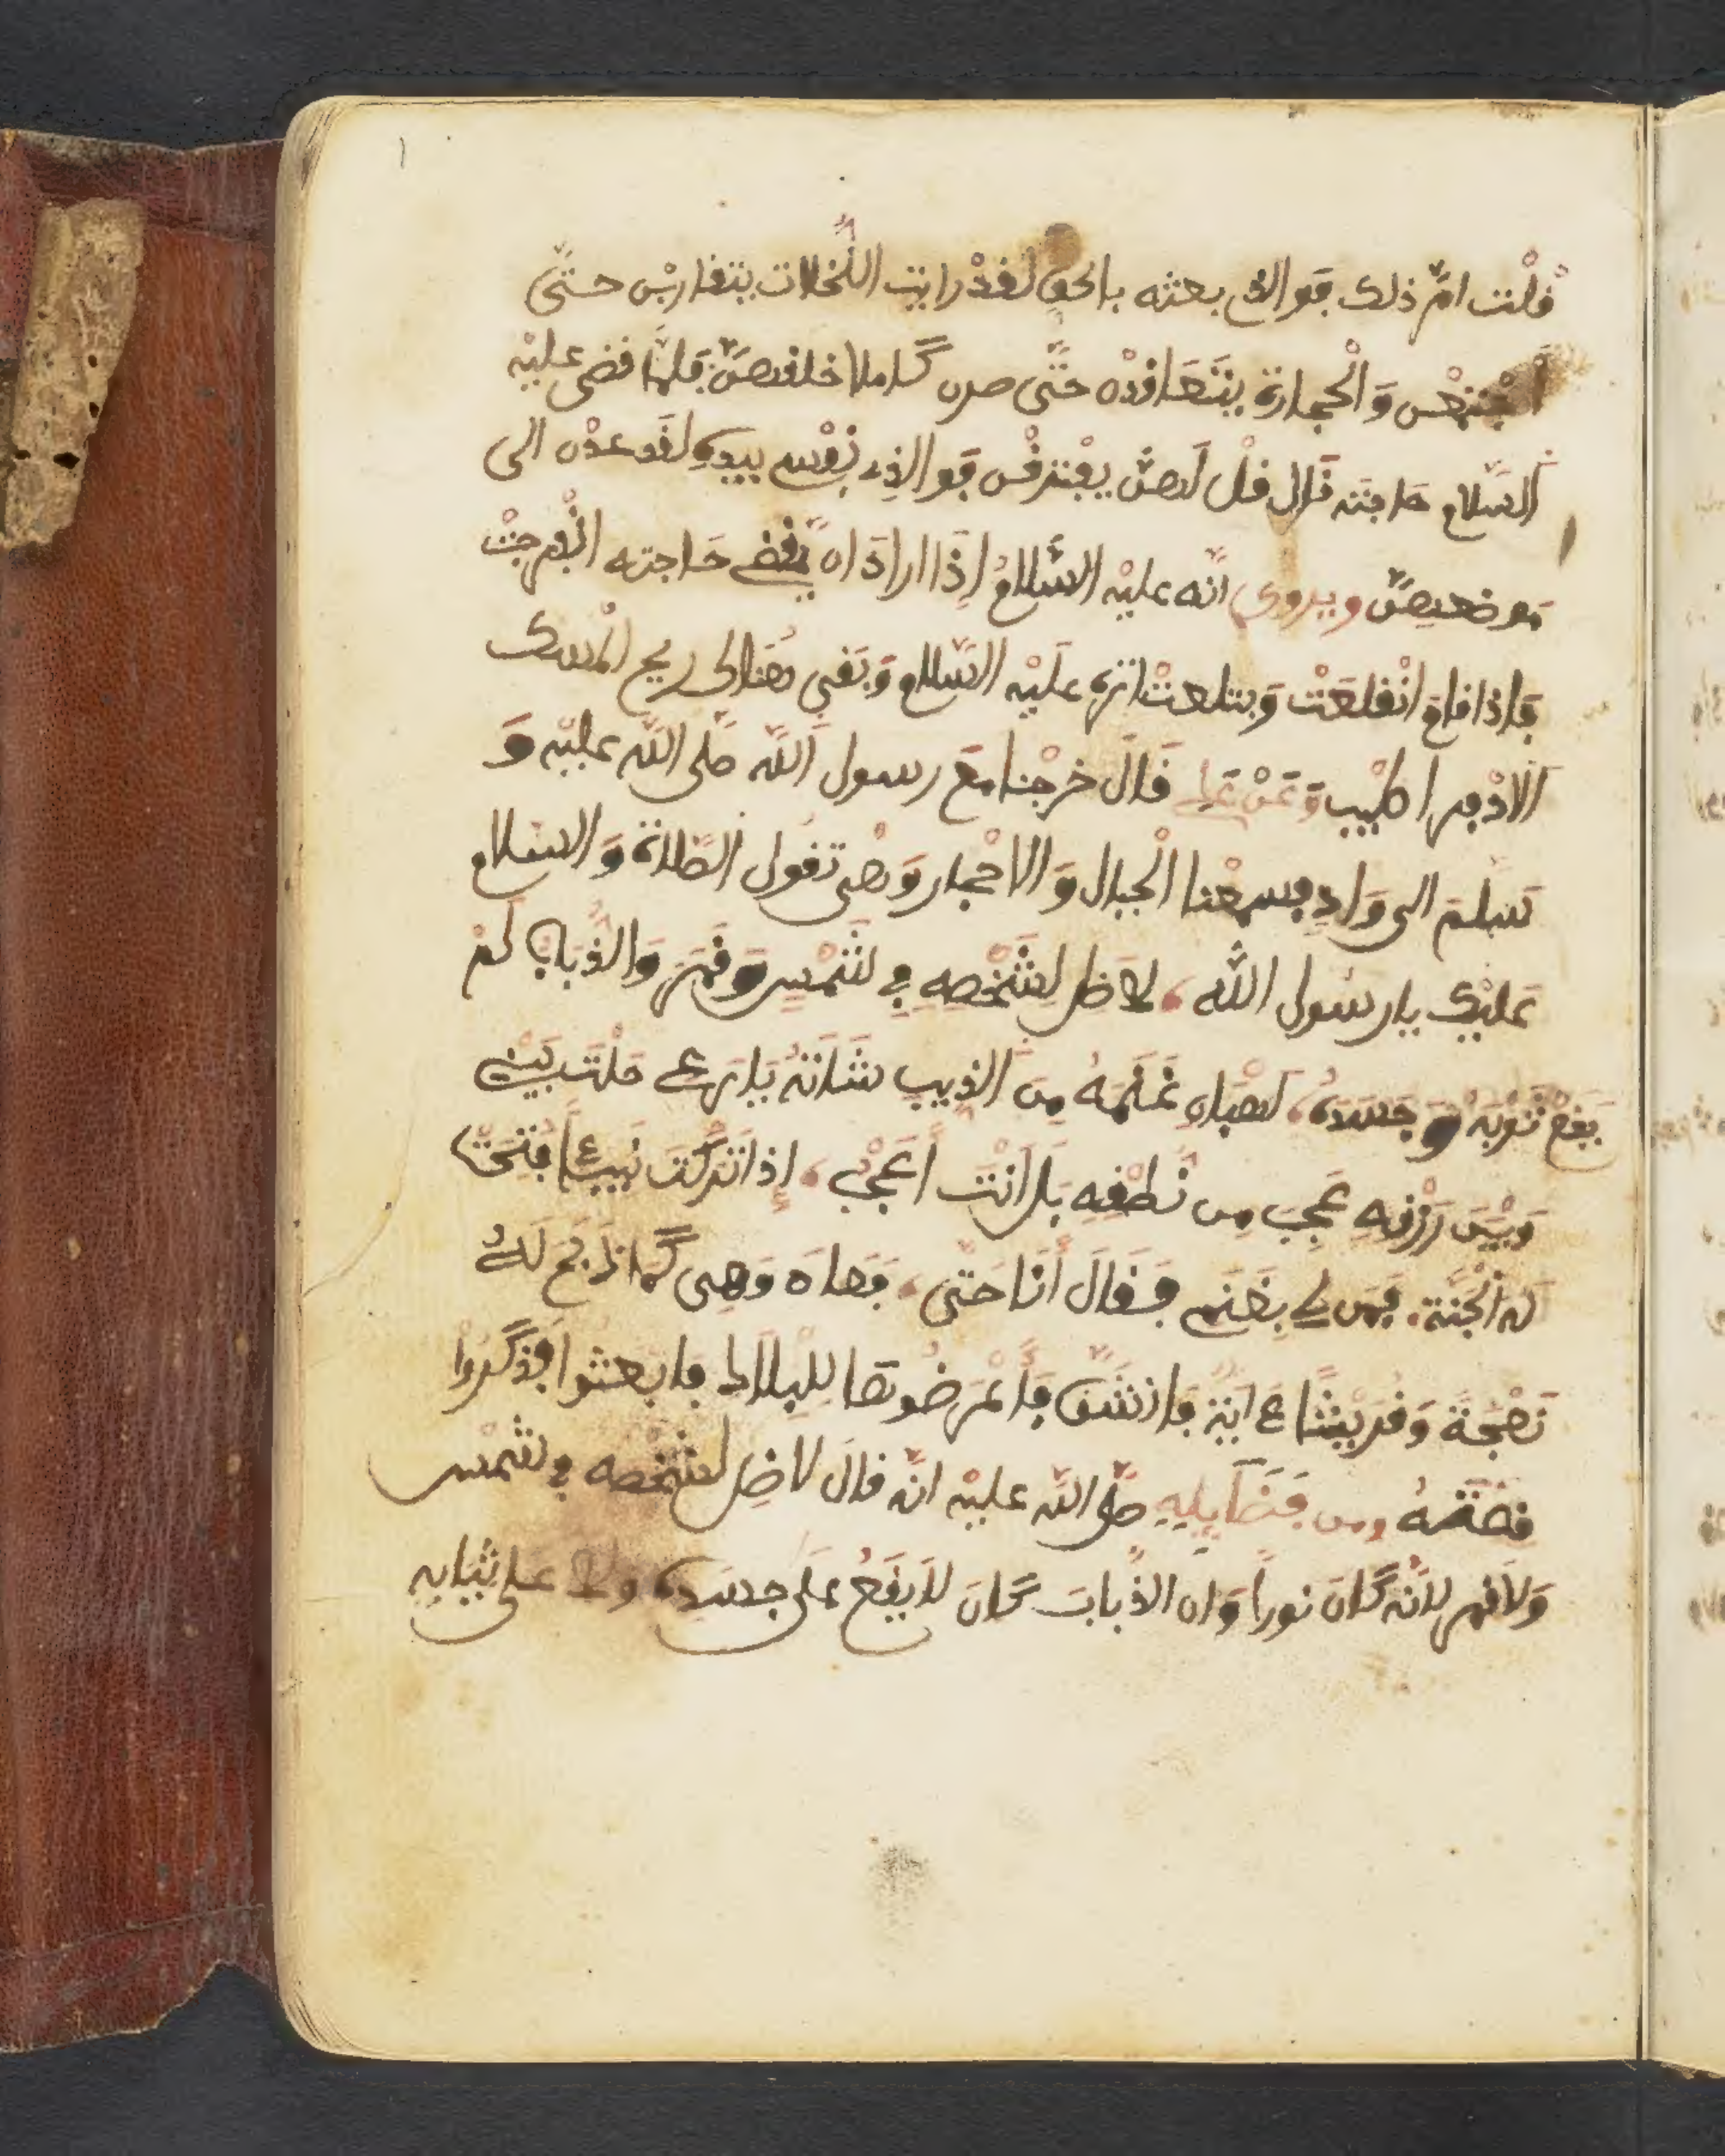 فلْت امّر ذلك فو الذى بعثه بالحق لفدْ رايت النّخلات يتفاربْن حتّى
اجْتمعْن وَالْحجارة يتَعَافدْن حتَّى صرن گاملا خلفهنَّ فلمَّا فضى عليْه
السّلام حاجته فَال فل لَهنّ يفْترفْن فو الذِے نفْسے بيدهِ لفَد عدْن الى
موضعهنَّ ويروى انّه عليْه السّلامُ إذَا ارادَ ان يّفضے حَاجته انْفرجتْ
فإذا فام انْفلعَتْ وبتلعتْ اثره عليْه السّلام وَبَفى هُنالى ريح الْمسك
الاذْفر اطْيب وَعَنْ عَلے فَالَ خرجْنا مَع رسول اللّه صَلّى اللّه عليْه وَ
سَلّمَ الى وَادِ فسمعْنا الْجبال وَالاحْجار وَهْى تفُول الصَّلاة وَالسلام
عَليْك يا رسُول اللّه لا ظل لشَخْصِهِ فے شمْسِ وَفمَر وَالذُّبابُ لَمْ
يَفعْ ثوْبَهُ وَ جَسَدَهُ لهبان غَنَمهُ مِنَ الذِيب شَانَهُ يَا رَعے حلْتَ بَيْنے
وَبيْنَ رزْفهِ عَجِبَ مِن نُطْفِهِ بَل انْت اَعَجْبُ إذ اترَكْتَ نَبيئاً فتِحَتْ
له الْجَنَّة فمَن لے بغَنَمے فَفَالَ أنَا حَتَّى فهاه وَهِى گما ذبَحَ لَهُ
نَعْجَةً وَفُرَيْشًا عَ ايَة فانْشَقّ فأَعْرَضُوهَا لِلْبِلاد فابعثوا فذكَّرُوا
فصّتهُ ومن فَضَآيِلِهِ صَلّى اللّه عليْه انّه فالَ لا ظِل لشخْصه فے شمْس
وَلاَ فمر لاَنّه گان نوراً وَان الذُّبابَ گانَ لاَ يفَعُ عَلى جسَدهِ ولا عَلى ثيَابِه